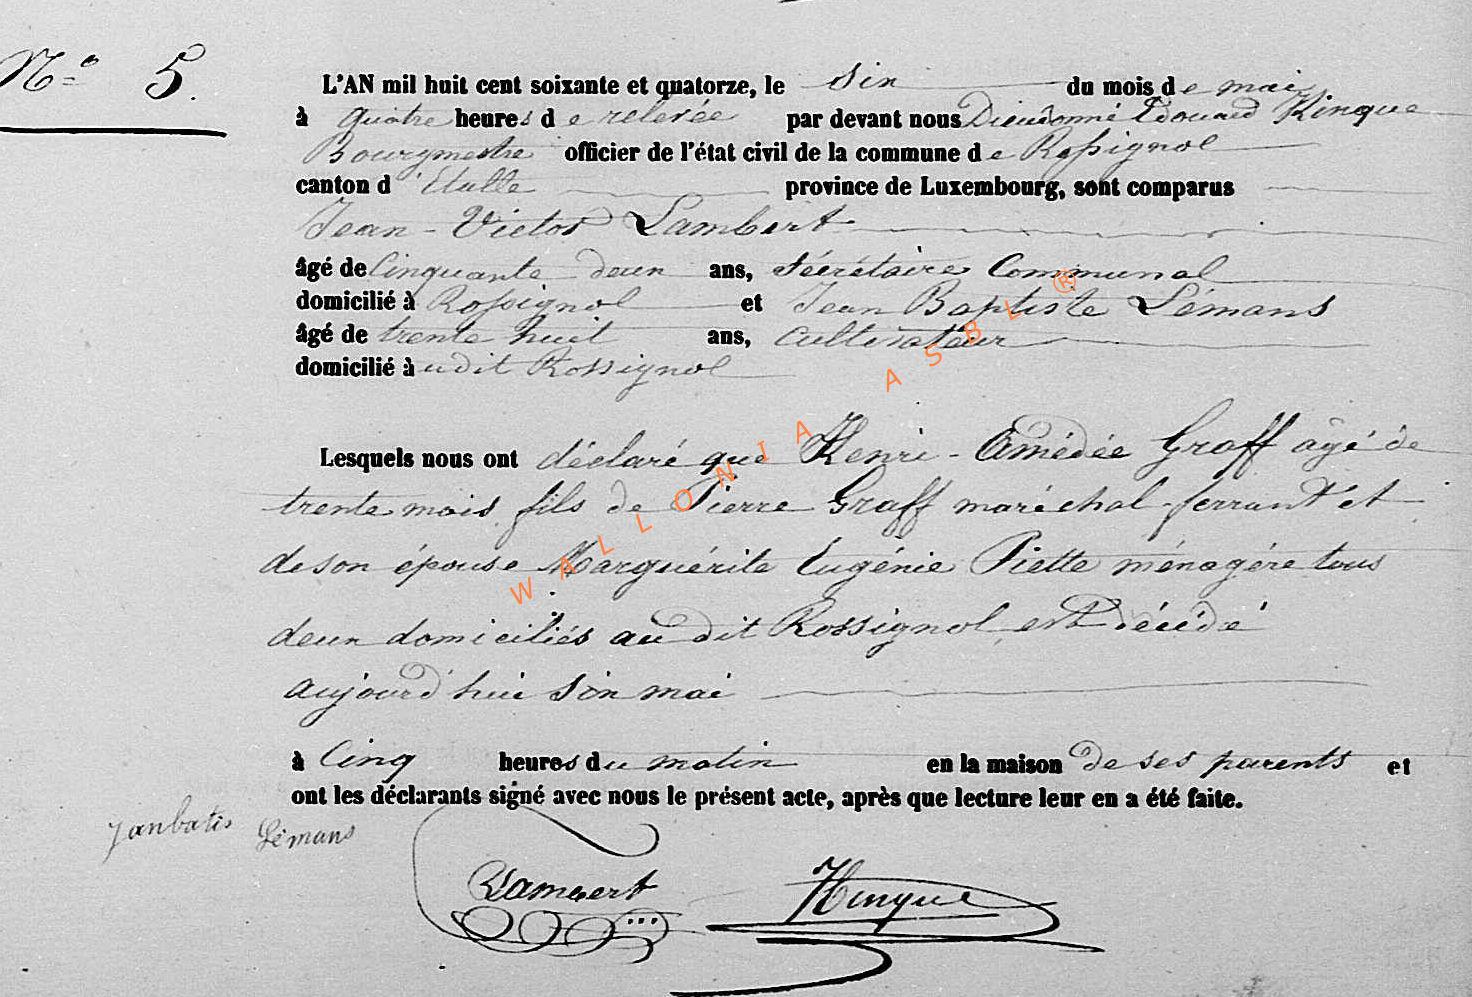 N° 5.
L'AN mil huit cent soixante et quatorze, le six du mois de mai
à quatre heures de relevée par devant nous Dieudonné Edouard Hinque
Bourgmestre officier de l'état civil de la commune de Rossignol
canton d'Etalle province de Luxembourg, sont comparus
Jean-Victor Lambert
âgé de Cinquante deux ans, sécrétaire Communal
domicilié à Rossignol et Jean Baptiste Lémans
âgé de trente huit ans, Cultivateur
domicilié audit Rossignol
Lesquels nous ont déclaré que Henri-Amédée Graff âgé de
trente mois fils de Pierre Graff maréchal-ferrant et
de son épouse Marguérite Eugénie Piette ménagère tous
deux domiciliés au dit Rossignol est décédé
aujourd'hui six mai
à Cinq heures du matin en la maison de ses parents et
ont les déclarants signé avec nous le présent acte, après que lecture leur en a été faite.
Janbatis Lémans
Lambert Hinque
WALLONIA ASBL ®